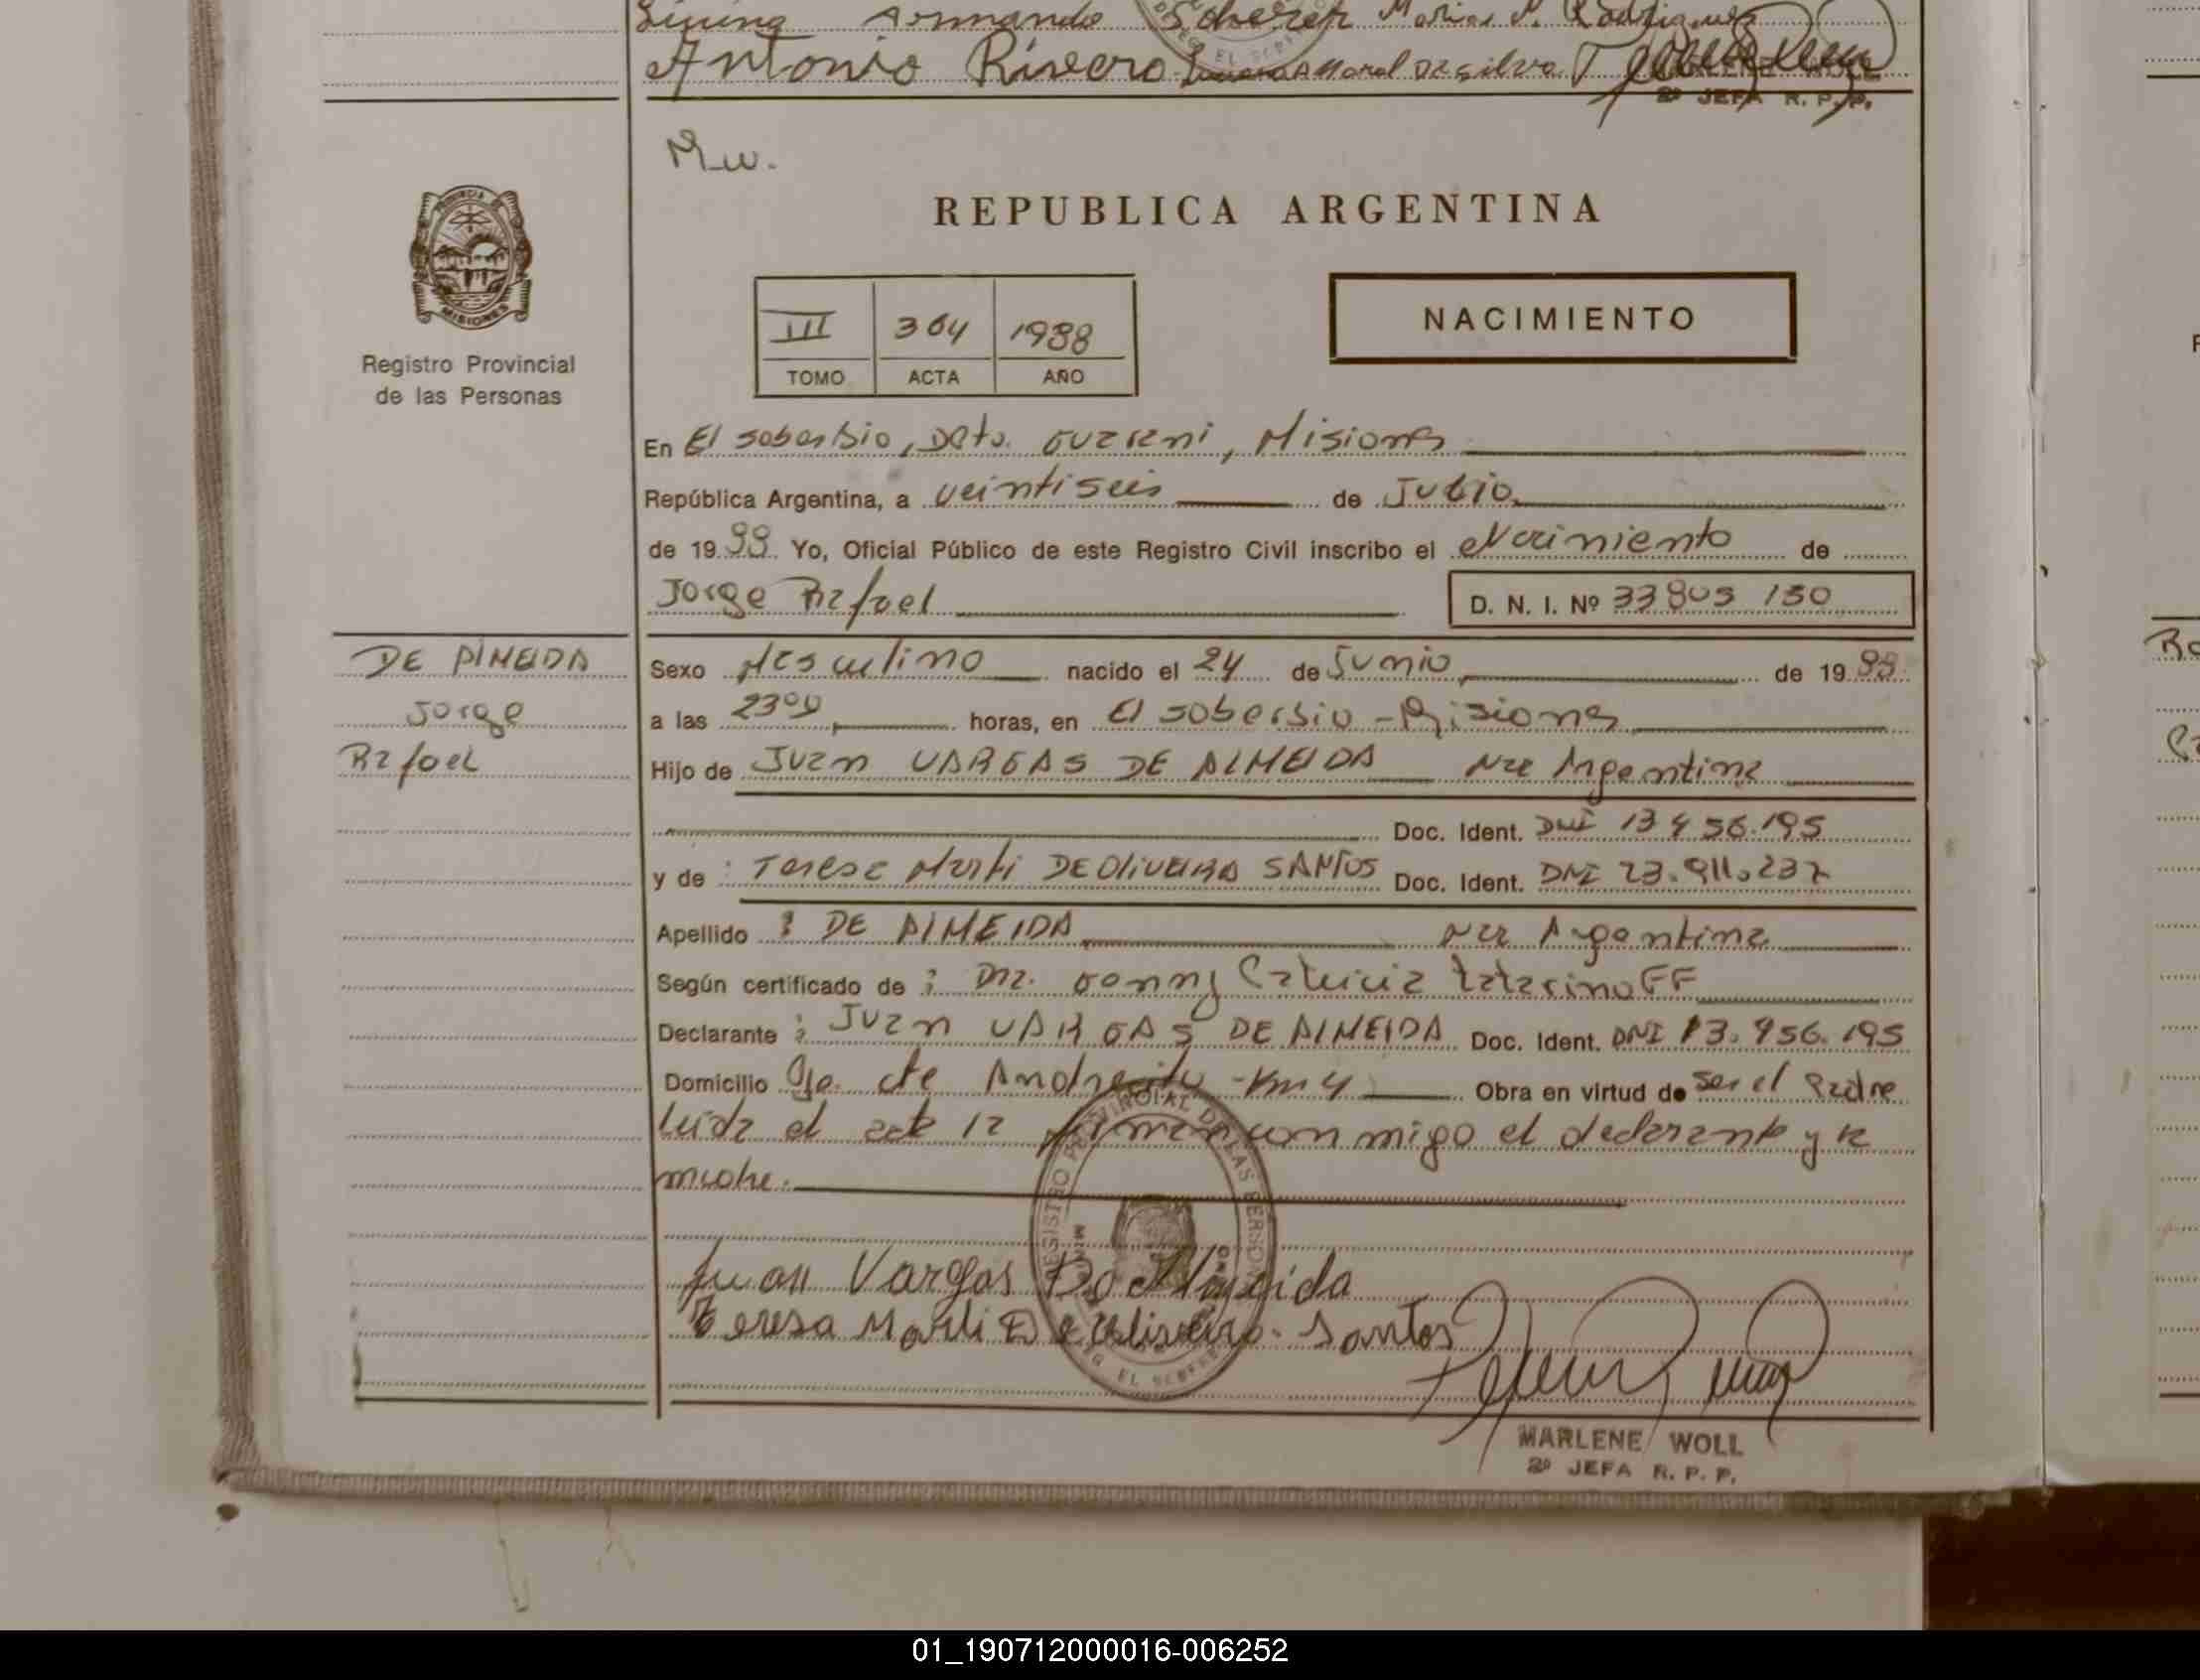 Armando Scherer Maria N. Rodriguez
Antonio Rivero Moral De Silva
2º JEFA R. P. P.
Mw.
PROVINCIA DE MISIONES
Registro Provincial
de las Personas
REPUBLICA ARGENTINA
III 364 1988
TOMO ACTA AÑO
NACIMIENTO
En El soberbio, Dpto. Guarani, Misiones
República Argentina, a veintiseis de Julio
de 19 88 Yo, Oficial Público de este Registro Civil inscribo el Nacimiento de
Jorge Rafael
D. N. I. Nº 33 803 150
DE ALMEIDA
Jorge
Rafael
Sexo Masculino nacido el 24 de Junio de 19 88
a las 23 00 horas, en El soberbio - Misiones
Hijo de Juan VARGAS DE ALMEIDA Nac Argentina
Doc. Ident. DNI 13 956.195
y de : Teresa Marli DE OLIVEIRA SANTOS Doc. Ident. DNI 23.911.237
Apellido : DE ALMEIDA Nac Argentina
Según certificado de : Dra.
Declarante : Juan VARGAS DE ALMEIDA Doc. Ident. DNI 13.956.195
Domicilio Cte Andresito - Km 4 Obra en virtud de ser el padre
Leida el acta la firman con migo el declarante y la
madre.
REGISTRO PROVINCIAL DE LAS PERSONAS
Juan Vargas De Almeida
Teresa Marli De Oliveira Santos
MARLENE WOLL
2º JEFA R. P. P.
01_190712000016-006252